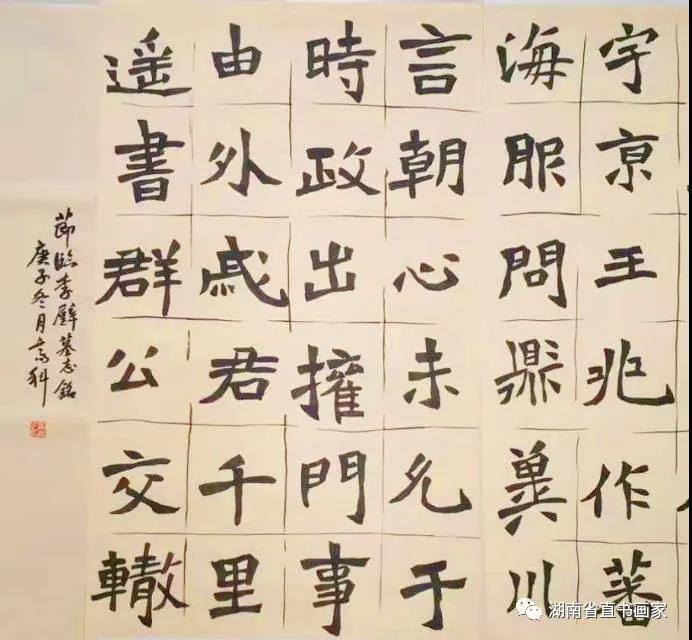 宇亰王兆作蕃
海服問鼎冀川
言朝心未允于
時政出擁門事
由外戚君千里
遥書群公交轍
節臨李璧墓志銘
庚子冬月高科
湖南省直书画家